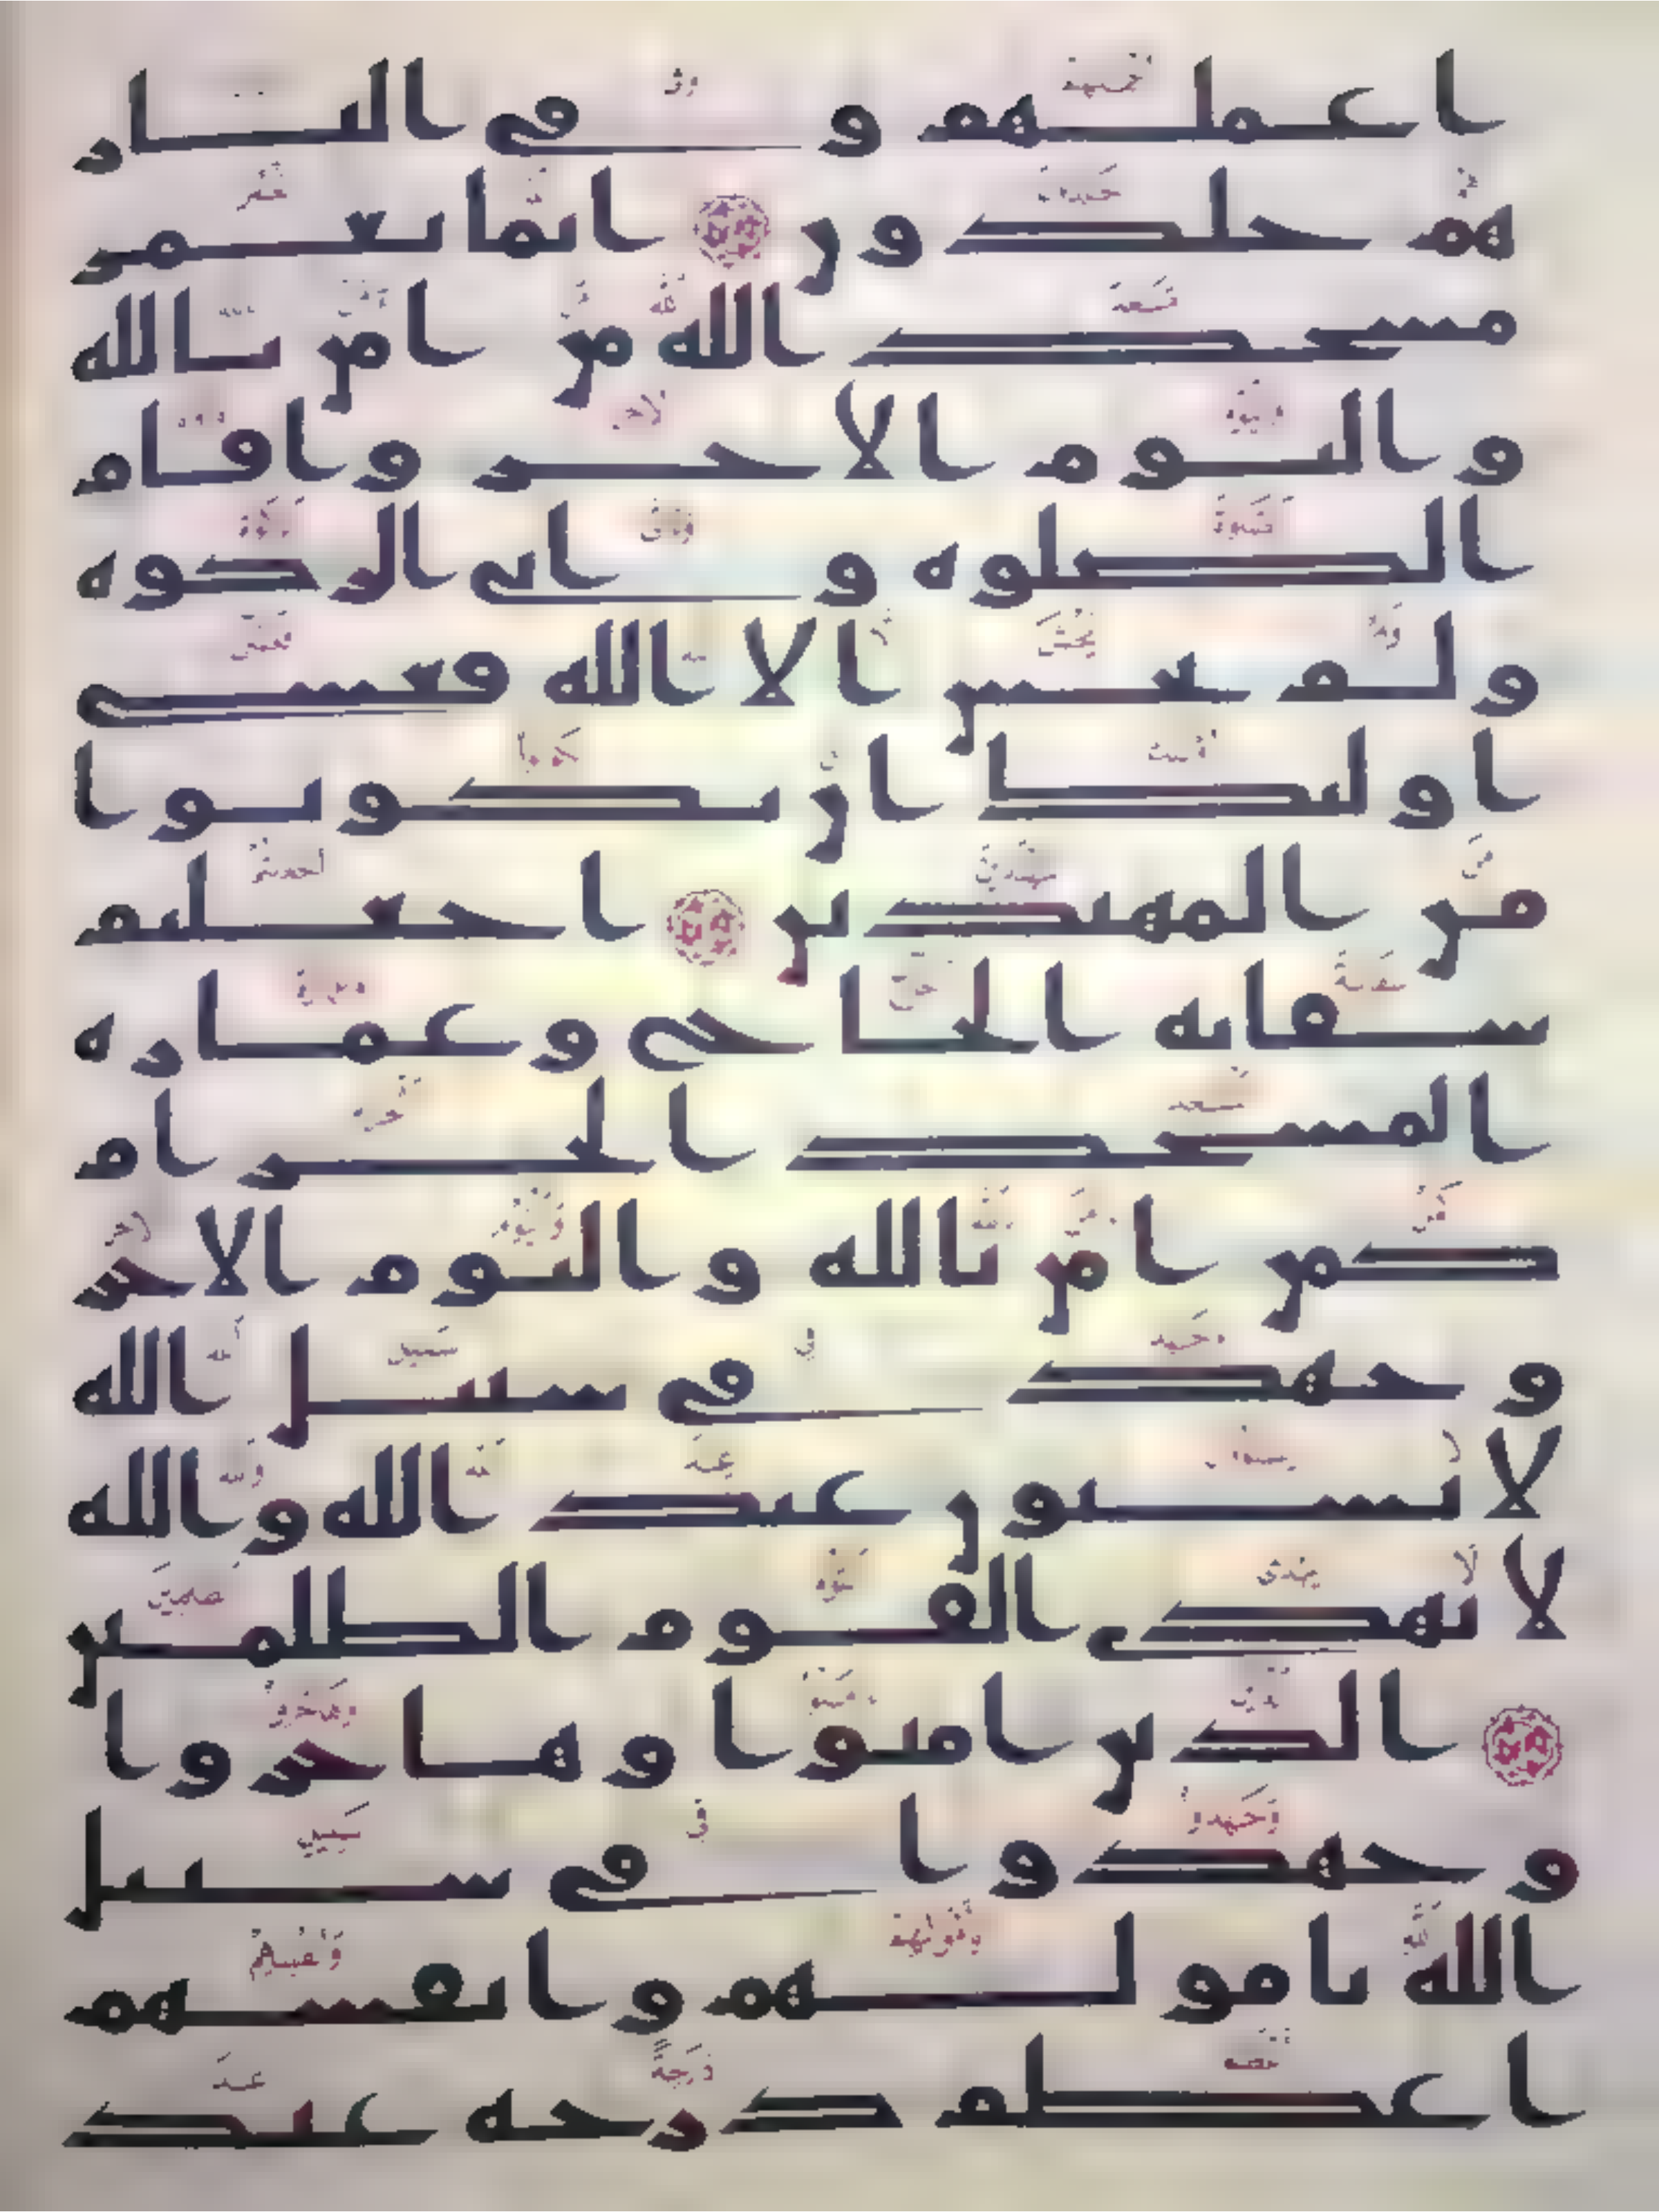 اعملهم وفي النار
هم خلدون انما يعمر
مسجد الله من امن بالله
واليوم الاخر واقام
الصلوه واتى الزكوه
ولم يخش الا الله فعسى
اولئك ان يكونوا
من المهتدين اجعلتم
سقايه الحاج وعماره
المسجد الحرام
كمن امن بالله واليوم الاخر
وجهد في سبيل الله
لا يستون عند الله والله
لا يهدى القوم الظلمين
الذين امنوا وهاجروا
وجهدوا في سبيل
الله بامولهم وانفسهم
اعظم درجه عند